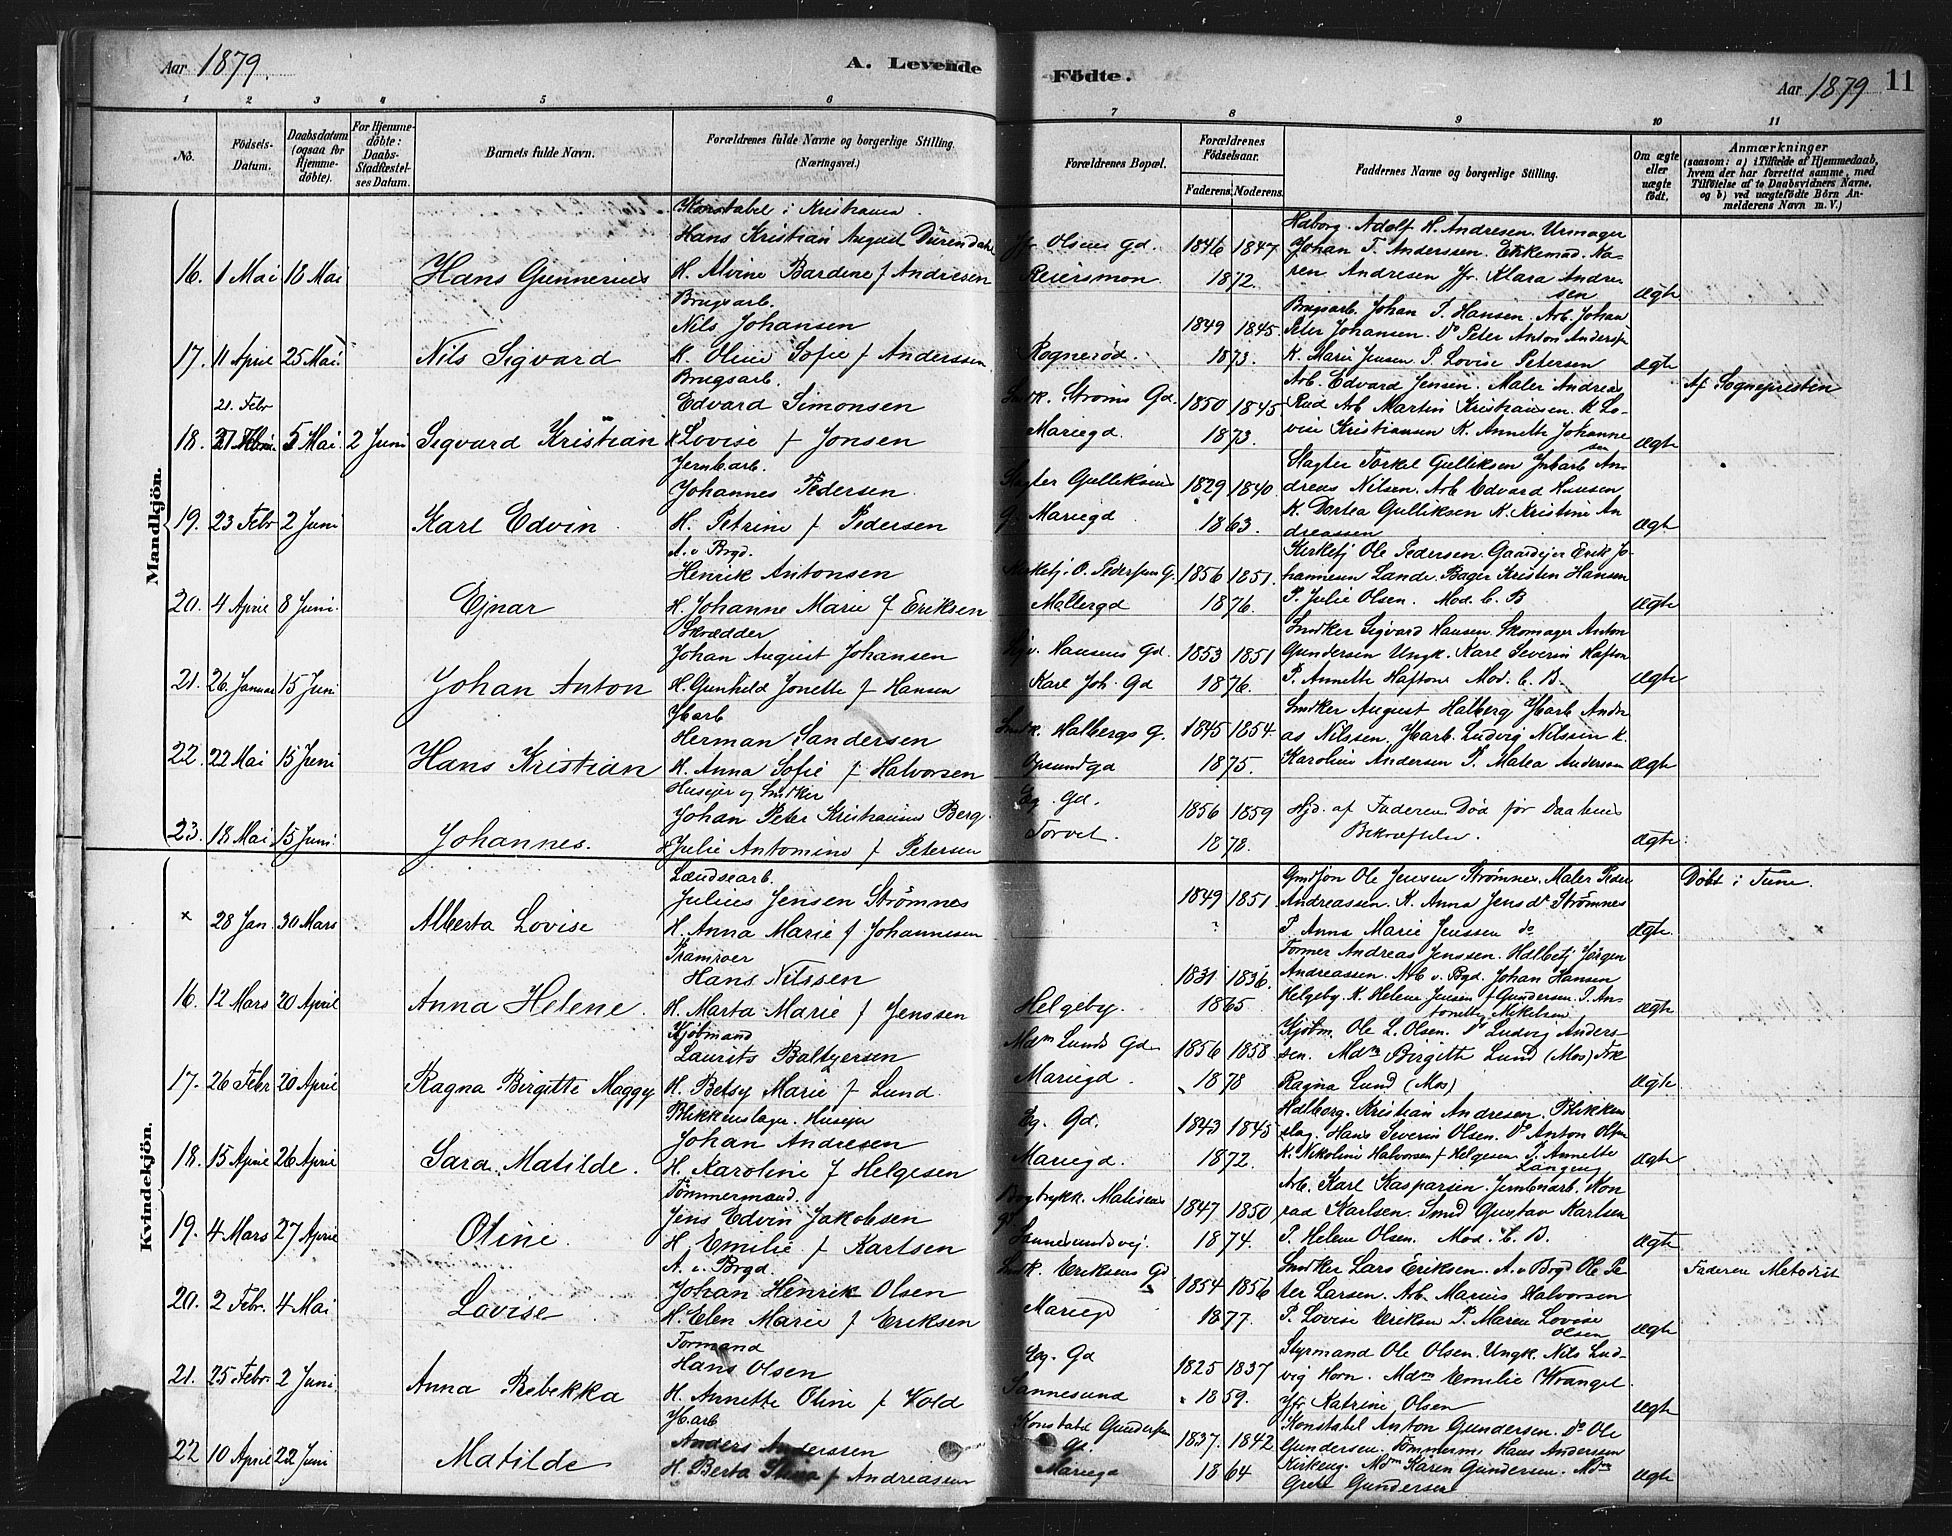 Aar 1879.
A. Levende Födte.
Aar 1879
11
1 2 3 4 5 6 7 8 9 10 11
No.
Födsels-Datum.
Daabsdatum (ogsaa for Hjemme-döbte).
For Hjemme-döbte: Daabs-Stadfæstel-ses Datum.
Barnets fulde Navn.
Forældrenes fulde Navne og borgerlige Stilling. (Næringsvei.)
Forældrenes Bopæl.
Forældrenes Födselsaar.
Faderens. Moderens.
Faddernes Navne og borgerlige Stilling.
Om ægte eller uægte født.
Anmærkninger
(saasom: a) i Tilfælde af Hjemmedaab, hvem der har forrettet samme, med Tilföielse af to Daabsvidners Navne, og b) ved uægtefödte Börn An-melderens Navn m. V.)
Mandkjön.
Konstabel i Kristiania.
Hans Kristian August Dürendahl
16. 1 Mai 18 Mai Hans Gunnerius H. Alvine Bardine f Andresen
Jfr. Olsens Gd.
Reiersmon
1846 1847
1872.
Adolf H. Andresen. Urmager
Johan T. Anderssen. Enkemad. Ka-
ren Andresen Jfr. Klara Andre-
sen
ægte
Brugsarb.
Nils Johansen
17. 11 April 25 Mai. Nils Sigvard K. Oline Sofie f Anderssen
Rognerød.
1849 1845.
1873.
Brugsarb. Johan P. Hansen. Arb. Johan
Peter Johansen. Do Peter Anton Anderss
K. Marie Jensen. P. Lovise Petersen
ægte
Brugsarb.
Edvard Simonsen
21. Febr
18. 5 Mai. 2 Juni Sigvard Kristian K Lovise f Jonsen
Smdk. Strøms Gd.
Mariegd.
1850 1845
1873.
Arb. Edvard Jensen. Maler Andreas
Rud Arb Martin Kristiansen. K Lo-
vise Kristiansen K. Annette Johanne
sen
ægte
Af Sognepresten
Jernbarb.
Johannes Pedersen.
19. 23 Febr 2 Juni Karl Edvin H. Petrine f Pedersen
Slagter Gulliksens
G. Mariegd
1829 1840.
1863.
Slagter Torkel Gulliksen Jnbarb An-
dreas Nilsen. Arb Edvard Hansen
K. Dortea Gulliksen K. Kristine An
dreassen
ægte
A. v. Brgd.
Henrik Antonsen
20. 4 April 8 Juni. Ejnar H. Johanne Marie f Eriksen
Kirketj. O. Pedersens G.
Møllergd
1856 1851.
1876.
Kirketj Ole Pedersen. Gaardejer Erik Jo-
hannesen Lande. Bager Kristen Hansen
P. Julie Olsen. Mod. C. B
ægte
Skrædder
Johan August Johansen
21. 26 Januar 15 Juni Johan Anton H. Gunhild Jonette f Hansen
Sigv. Hansens Gd.
Karl Joh. Gd
1853 1851
1876.
Smdker Sigvard Hansen. Skomager Anton
Gundersen Ungk. Karl Severin Hafton
P. Annette Haftons Mod. C. B.
ægte
Harb
Herman Sandersen
22. 22 Mai 15 Juni Hans Kristian H. Anna Sofie f Halvorsen
Smdk. Halbergs G.
Opsundgd
1845 1854.
1875.
Smdker August Halberg Harb Andre
as Nilssen. Harb. Ludvig Nilssen K.
Karoline Andersen P. Matea Andersen
ægte
Husejer og Smdker
Johan Peter Kristianus Berg
23. 18 Mai 15 Juni. Johannes. H Julie Antomine f Petersen
Eg. Gd.
Torvet.
1856 1859
1878.
Hjd. af Faderen Død før Daabens
Bekræftelse.
ægte.
Kvindekjön.
Lændsearb.
Julius Jensen Strømnes
x 28 Jan. 30 Mars Alberta Lovise H. Anna Marie f Johannesen
1849 1851.
Gmdsøn Ole Jensen Strømnes. Maler Peder
Andreassen. K. Anna Jensdt Strømnes
P. Anna Marie Jenssen do
ægte.
Døbt i Tune.
Pramroer
Hans Nilssen
16. 12 Mars 20 April Anna Helene. H. Marta Marie f Jenssen
Helgeby.
1831 1836.
1865
Tømmer Andreas Jenssen. Hdlbetj. Jørgen
Andreassen. Arb v. Bgd. Johan Hansen
Helgeby. K. Helene Jensen f Gundersen. P. An-
tonette Mikelsen
ægte
Kjøbmand
Laurits Baltzersen
17. 26 Febr 20 April Ragna Birgitte Maggy H. Betsy Marie f Lund.
Mdm Lunds Gd.
Mariegd.
1856 1858
1878
Kjøbm. Ole L. Olsen. Do Ludvig Anders-
sen. Mdm Birgitte Lund (Mos) Frk
Ragna Lund (Mos)
ægte
Blikkenslager. Husejer
Johan Andresen
18. 15 April 26 April Sara Matilde. H. Karoline f Helgesen
Eg. Gd.
Mariegd.
1843 1845
1872.
Hdlborg. Kristian Andresen. Blikken
slag. Hans Severin Olsen. Do Anton Olsen
K. Nikoline Halvorsen f Helgesen P. Annette
Langeng
ægte
Tømmermand.
Jens Edvin Jakobsen
19. 4 Mars 27 April Oline. H. Emilie f Karlsen
Bogtrykk. Matisens
G.
Sannesundsvej.
1847 1850
1874.
Arb. Karl Kaspersen. Jernbnarb. Kon
rad Karlsen. Smd Gustav Karlsen
P. Helene Olsen. Mod. C. B.
ægte
A. v. Brgd.
Johan Henrik Olsen
20. 2 Febr. 4 Mai Lovise H. Elen Marie f Eriksen
Smdk. Eriksens Gd
Mariegd
1854 1856
1877.
Smdker Lars Eriksen. A. v Bogd Ole Pe
ter Larsen. Arb. Marius Halvorsen
P. Lovise Eriksen P. Maren Lovise
Olsen
ægte
Faderen Metodist
Formand
Hans Olsen
21. 25 Febr. 2 Juni. Anna Rebekka H. Annette Oline f Wold
Eg. Gd
Sannesund
1825 1837
1859.
Styrmand Ole Olsen. Ungk. Nils Lud-
vig Horn. Mdm Emilie Wrangel.
Jfr Katrine Olsen
ægte
Harb
Anders Anderssen
22 10 April 22 Juni Matilde H. Berta Stina f Andreassen
Konstabl Gundersens
Gd.
Mariegd
1837. 1842
1864
Konstabel Anton Gundersen. do Ole
Gundersen. Tømmerm. Hans Andersen
Kirkeng. Mdm Karen Gundersen. Mdm
Grete Gundersen
ægte